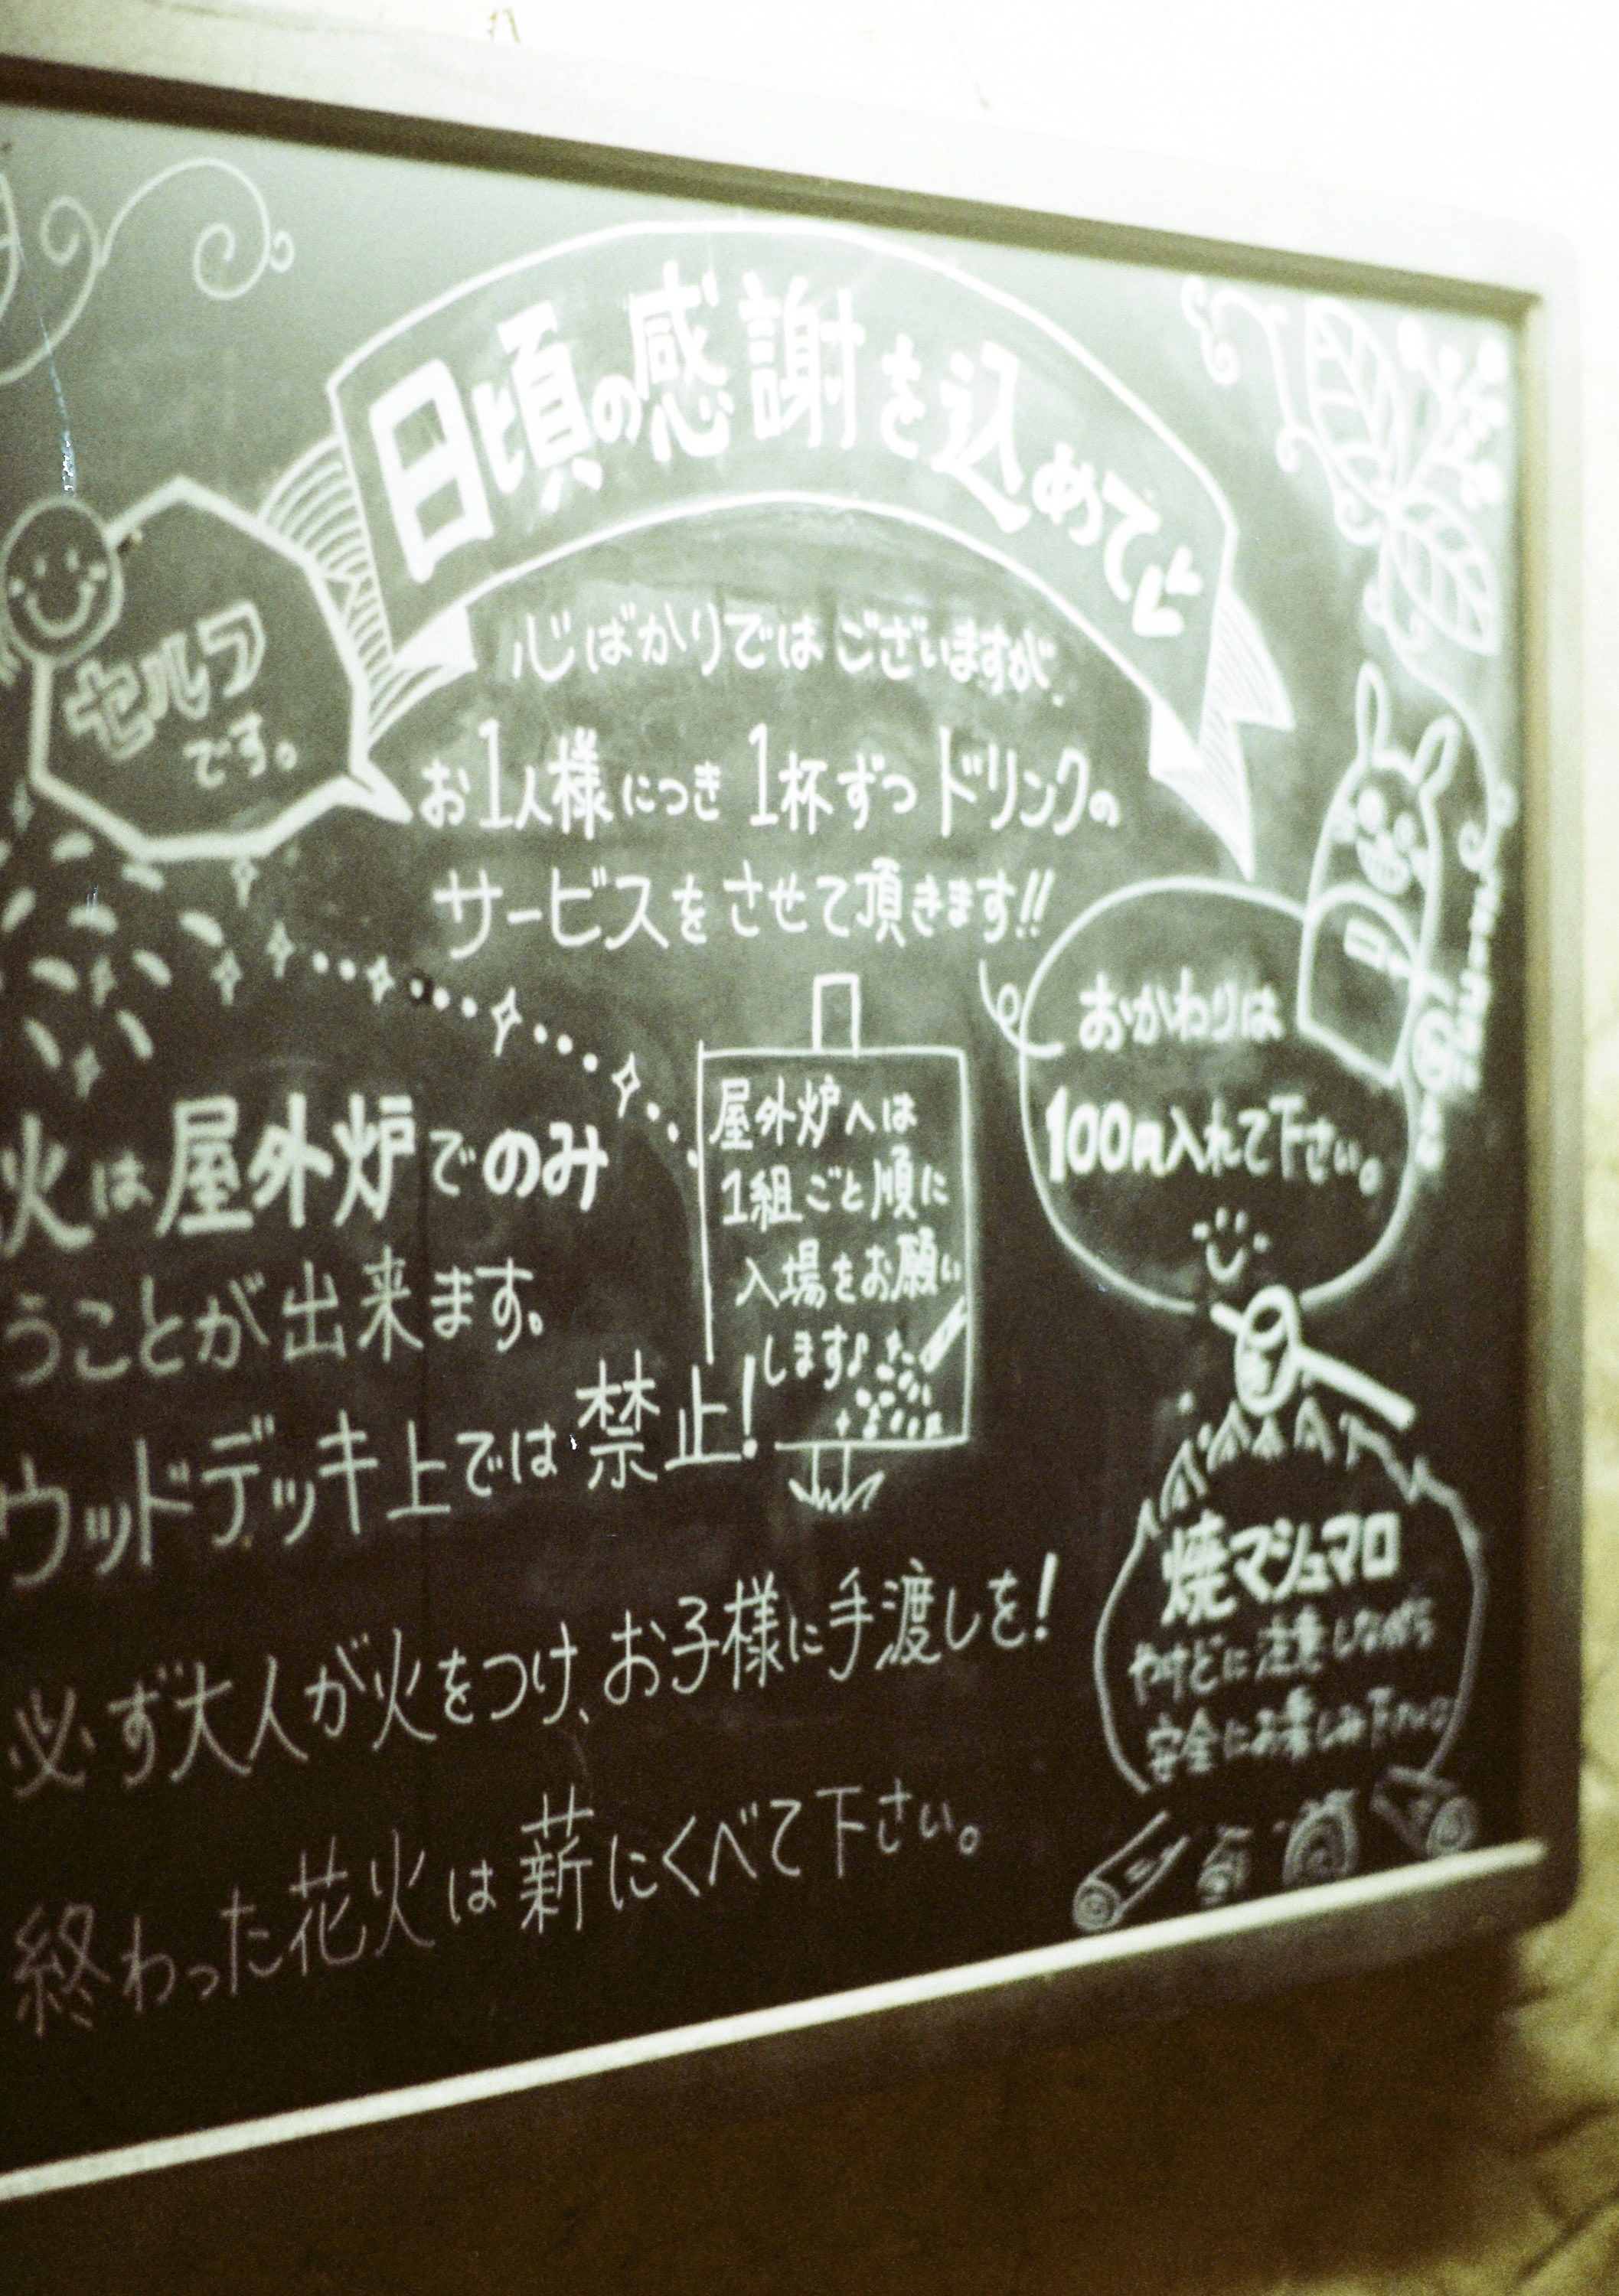 日頃の感謝を込めて
セルフ
です。
心ばかりではございますが、
お1人様につき 1杯ずつ ドリンクの
サービスをさせて頂きます!!
おかわりは
100円入れて下さい。
火は屋外炉でのみ
うことが出来ます。
ウッドデッキ上では禁止!
屋外炉へは
1組ごと順に
入場をお願い
します♪
必ず大人が火をつけ、お子様に手渡しを!
終わった花火は薪にくべて下さい。
焼マシュマロ
やけどに注意しながら
安全にお楽しみ下さい。